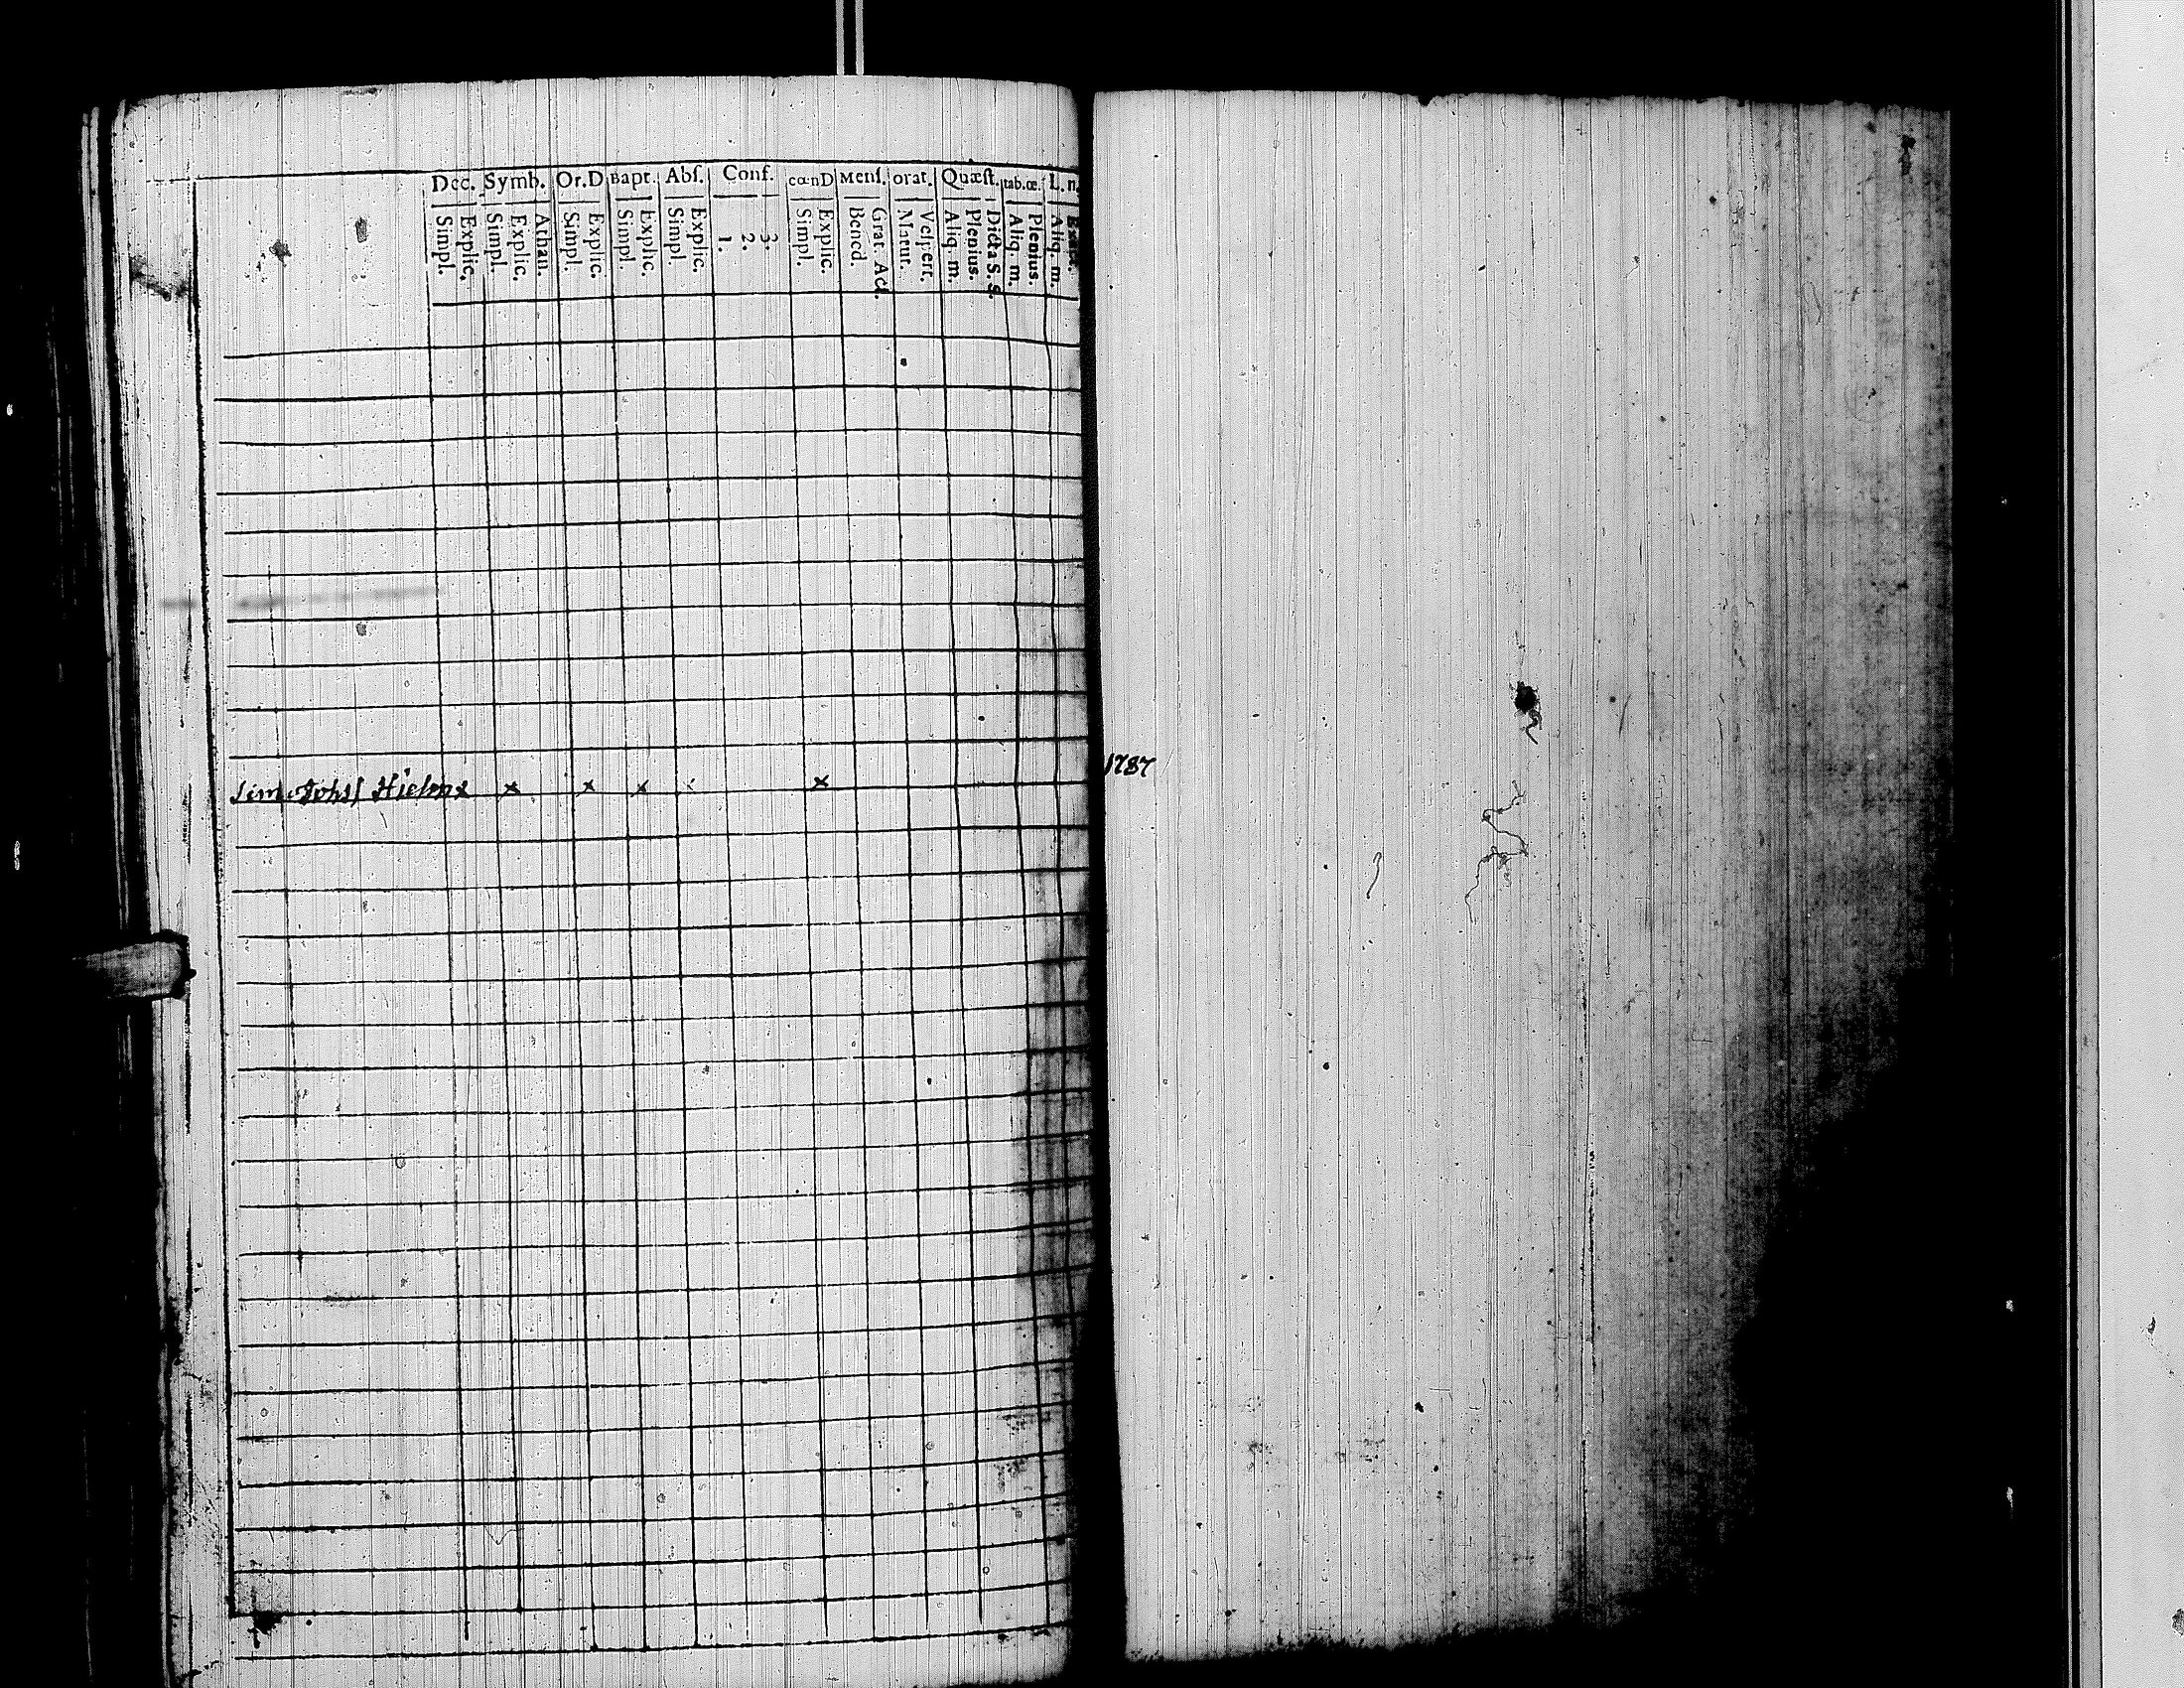 Dec. Symb. Or.D Bapt. Abs. Conf. cœnD Mens. orat. Quæst. tab.œ. L. n.
Simpl. Explic. Simpl. Explic. Athan. Simpl. Explic. Simpl. Explic. Simpl. Explic. 1. 2. 3. Simpl. Explic. Bened. Grat. Act. Matut. Vespert. Aliq. m. Plenius. Dicta S. S. Aliq. m. Plenius. Aliq. m. Exact.
Sim. Johsſ x x x x x x 1787